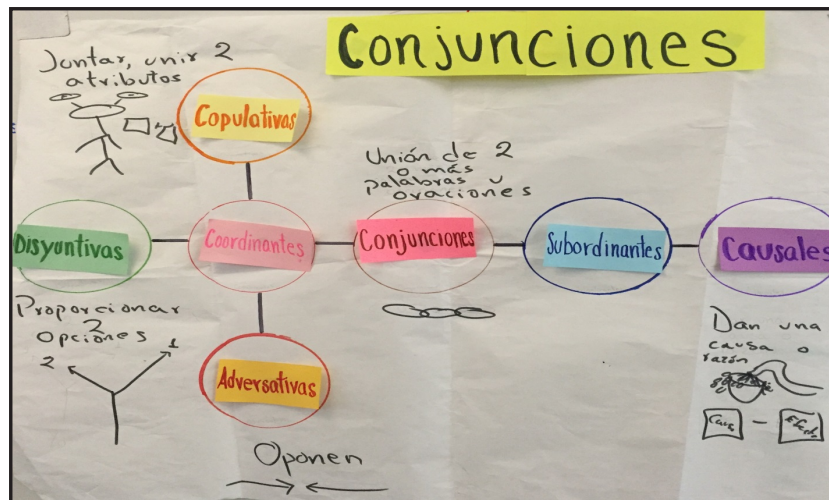 Conjunciones
Juntar, unir 2
atributos
Copulativas
Unión de 2
o más
palabras u
oraciones
Disyuntivas
Coordinantes
Conjunciones
Subordinantes
Causales
Proporcionar
2
opciones
2
1
Dan una
causa o
razón
Adversativas
Causa
Efecto
Oponen